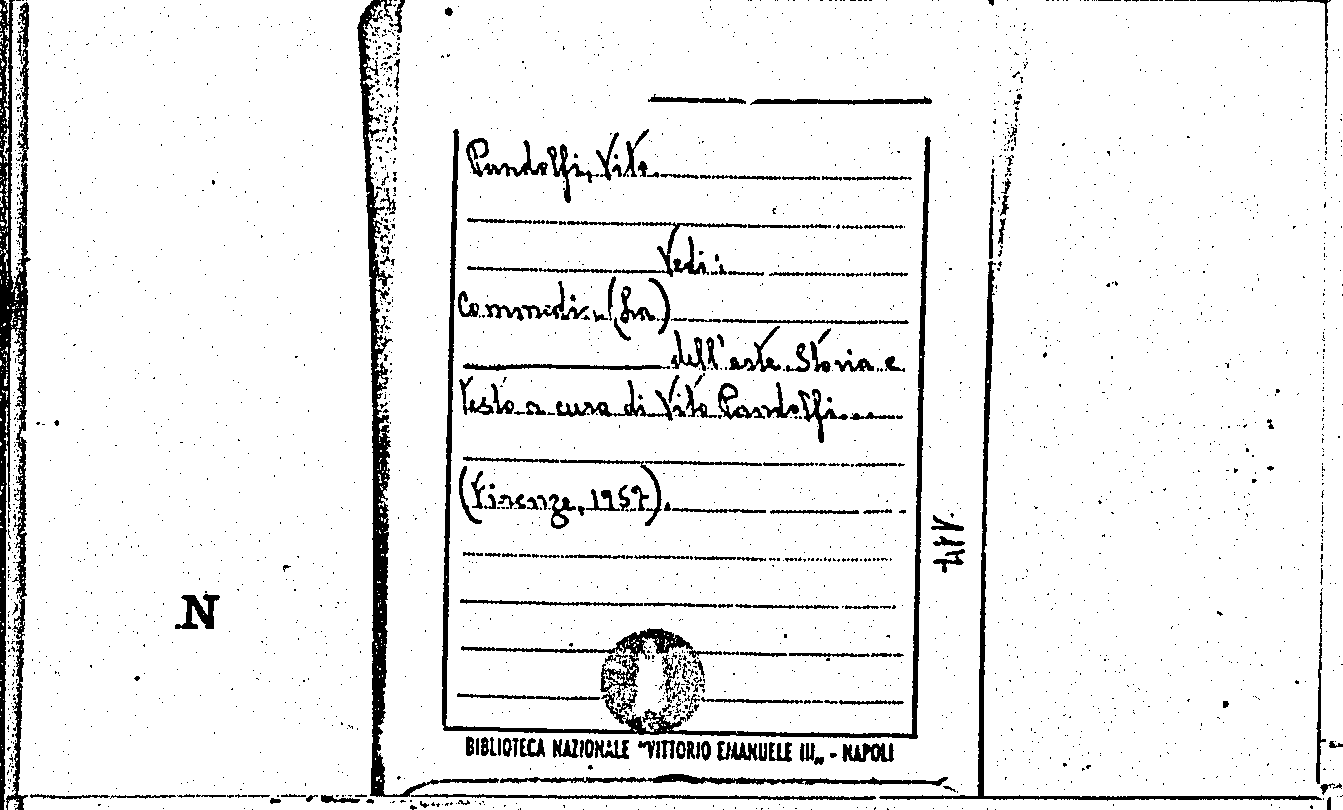 Pandolfi, Vito
Vedi:
Commedia (La)
dell'arte. Storia e
testo a cura di Vito Pandolfi...
(Firenze, 1957).
N
BIBLIOTECA NAZIONALE "VITTORIO EMANUELE III„ - NAPOLI